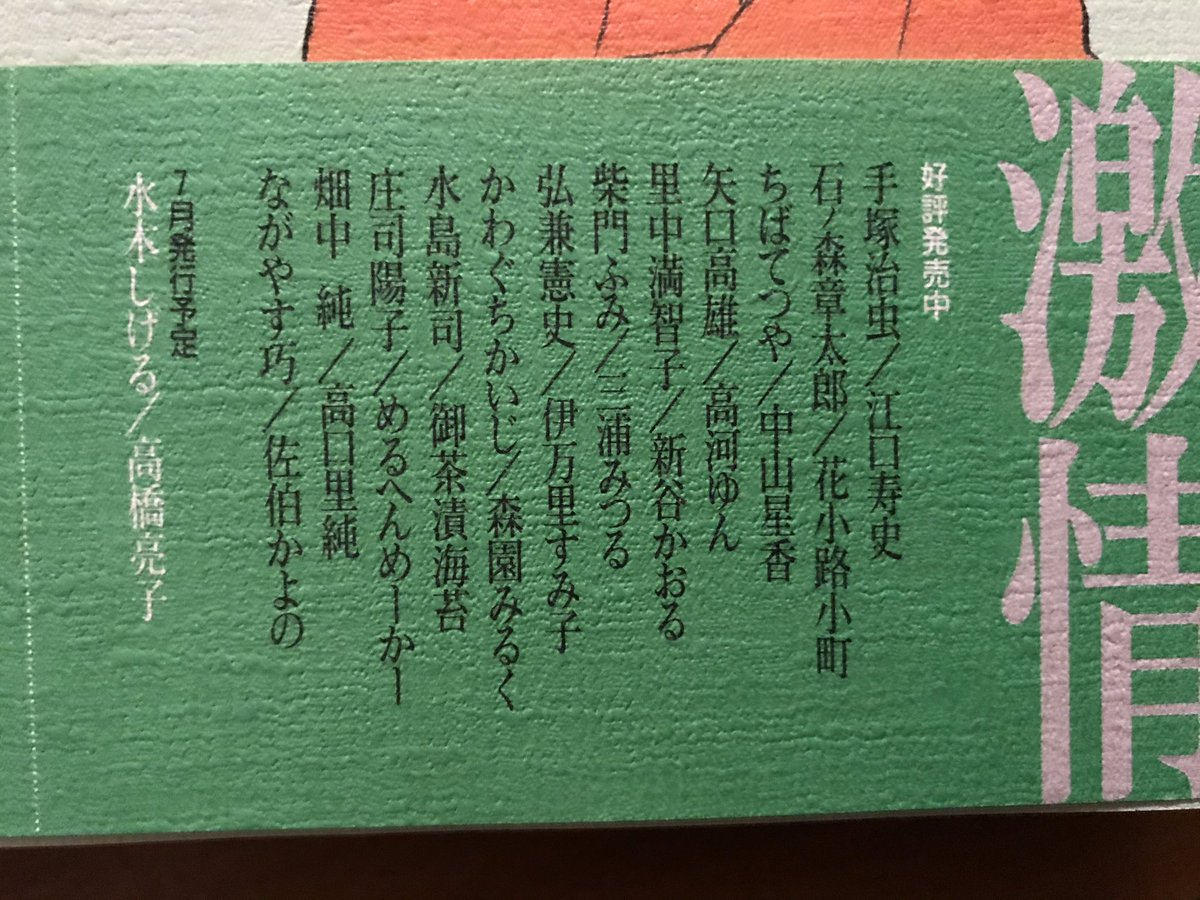 激情
好評発売中
手塚治虫／江口寿史
石ノ森章太郎／花小路小町
ちばてつや／中山星香
矢口高雄／高河ゆん
里中満智子／新谷かおる
柴門ふみ／三浦みつる
弘兼憲史／伊万里すみ子
かわぐちかいじ／森園みるく
水島新司／御茶漬海苔
庄司陽子／めるへんめーかー
畑中 純／高口里純
ながやす巧／佐伯かよの
7月発行予定
水木しげる／高橋亮子